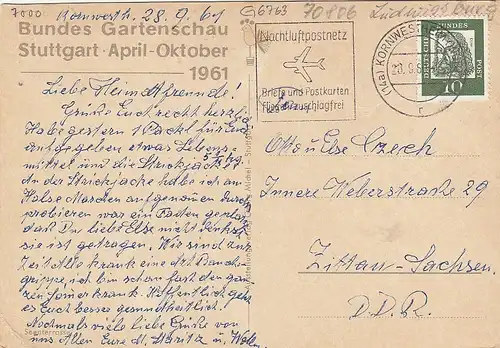 7000
Kornwesth. 28. 9. 61
G6763
70806
Ludwigsburg
Bundes Gartenschau
Stuttgart · April-Oktober
1961
Nachluftpostnetz
Briefe und Postkarten
zuschlagfrei
(14a) KORNWESTHEIM
DEUTSCHE BUNDESPOST
10
Liebe Heimatfreunde!
Grüße Euch recht herzlich
Habe gestern 1 Packl für Euch
aufgegeben etwas Lebens-
mittel und die Strickjacke
An der Strickjacke habe ich am
Halse Maschen aufgenommen
probieren war ein Faden
daß Du liebe Else nicht denkst
sie ist getragen. Wir sind zur
Zeit Alle krank eine Art Darm-
grippe, ich bin schon fast den gan-
zen Sommer krank. Hoffentlich geht
es Euch besser gesundheitlich!
Nochmals viele liebe Grüße von
uns Allen Eure M. Staritz u.
Seeterrasse
Otto u Else Czech
Innere Weberstraße 29
Zittau-Sachsen
D.D.R.